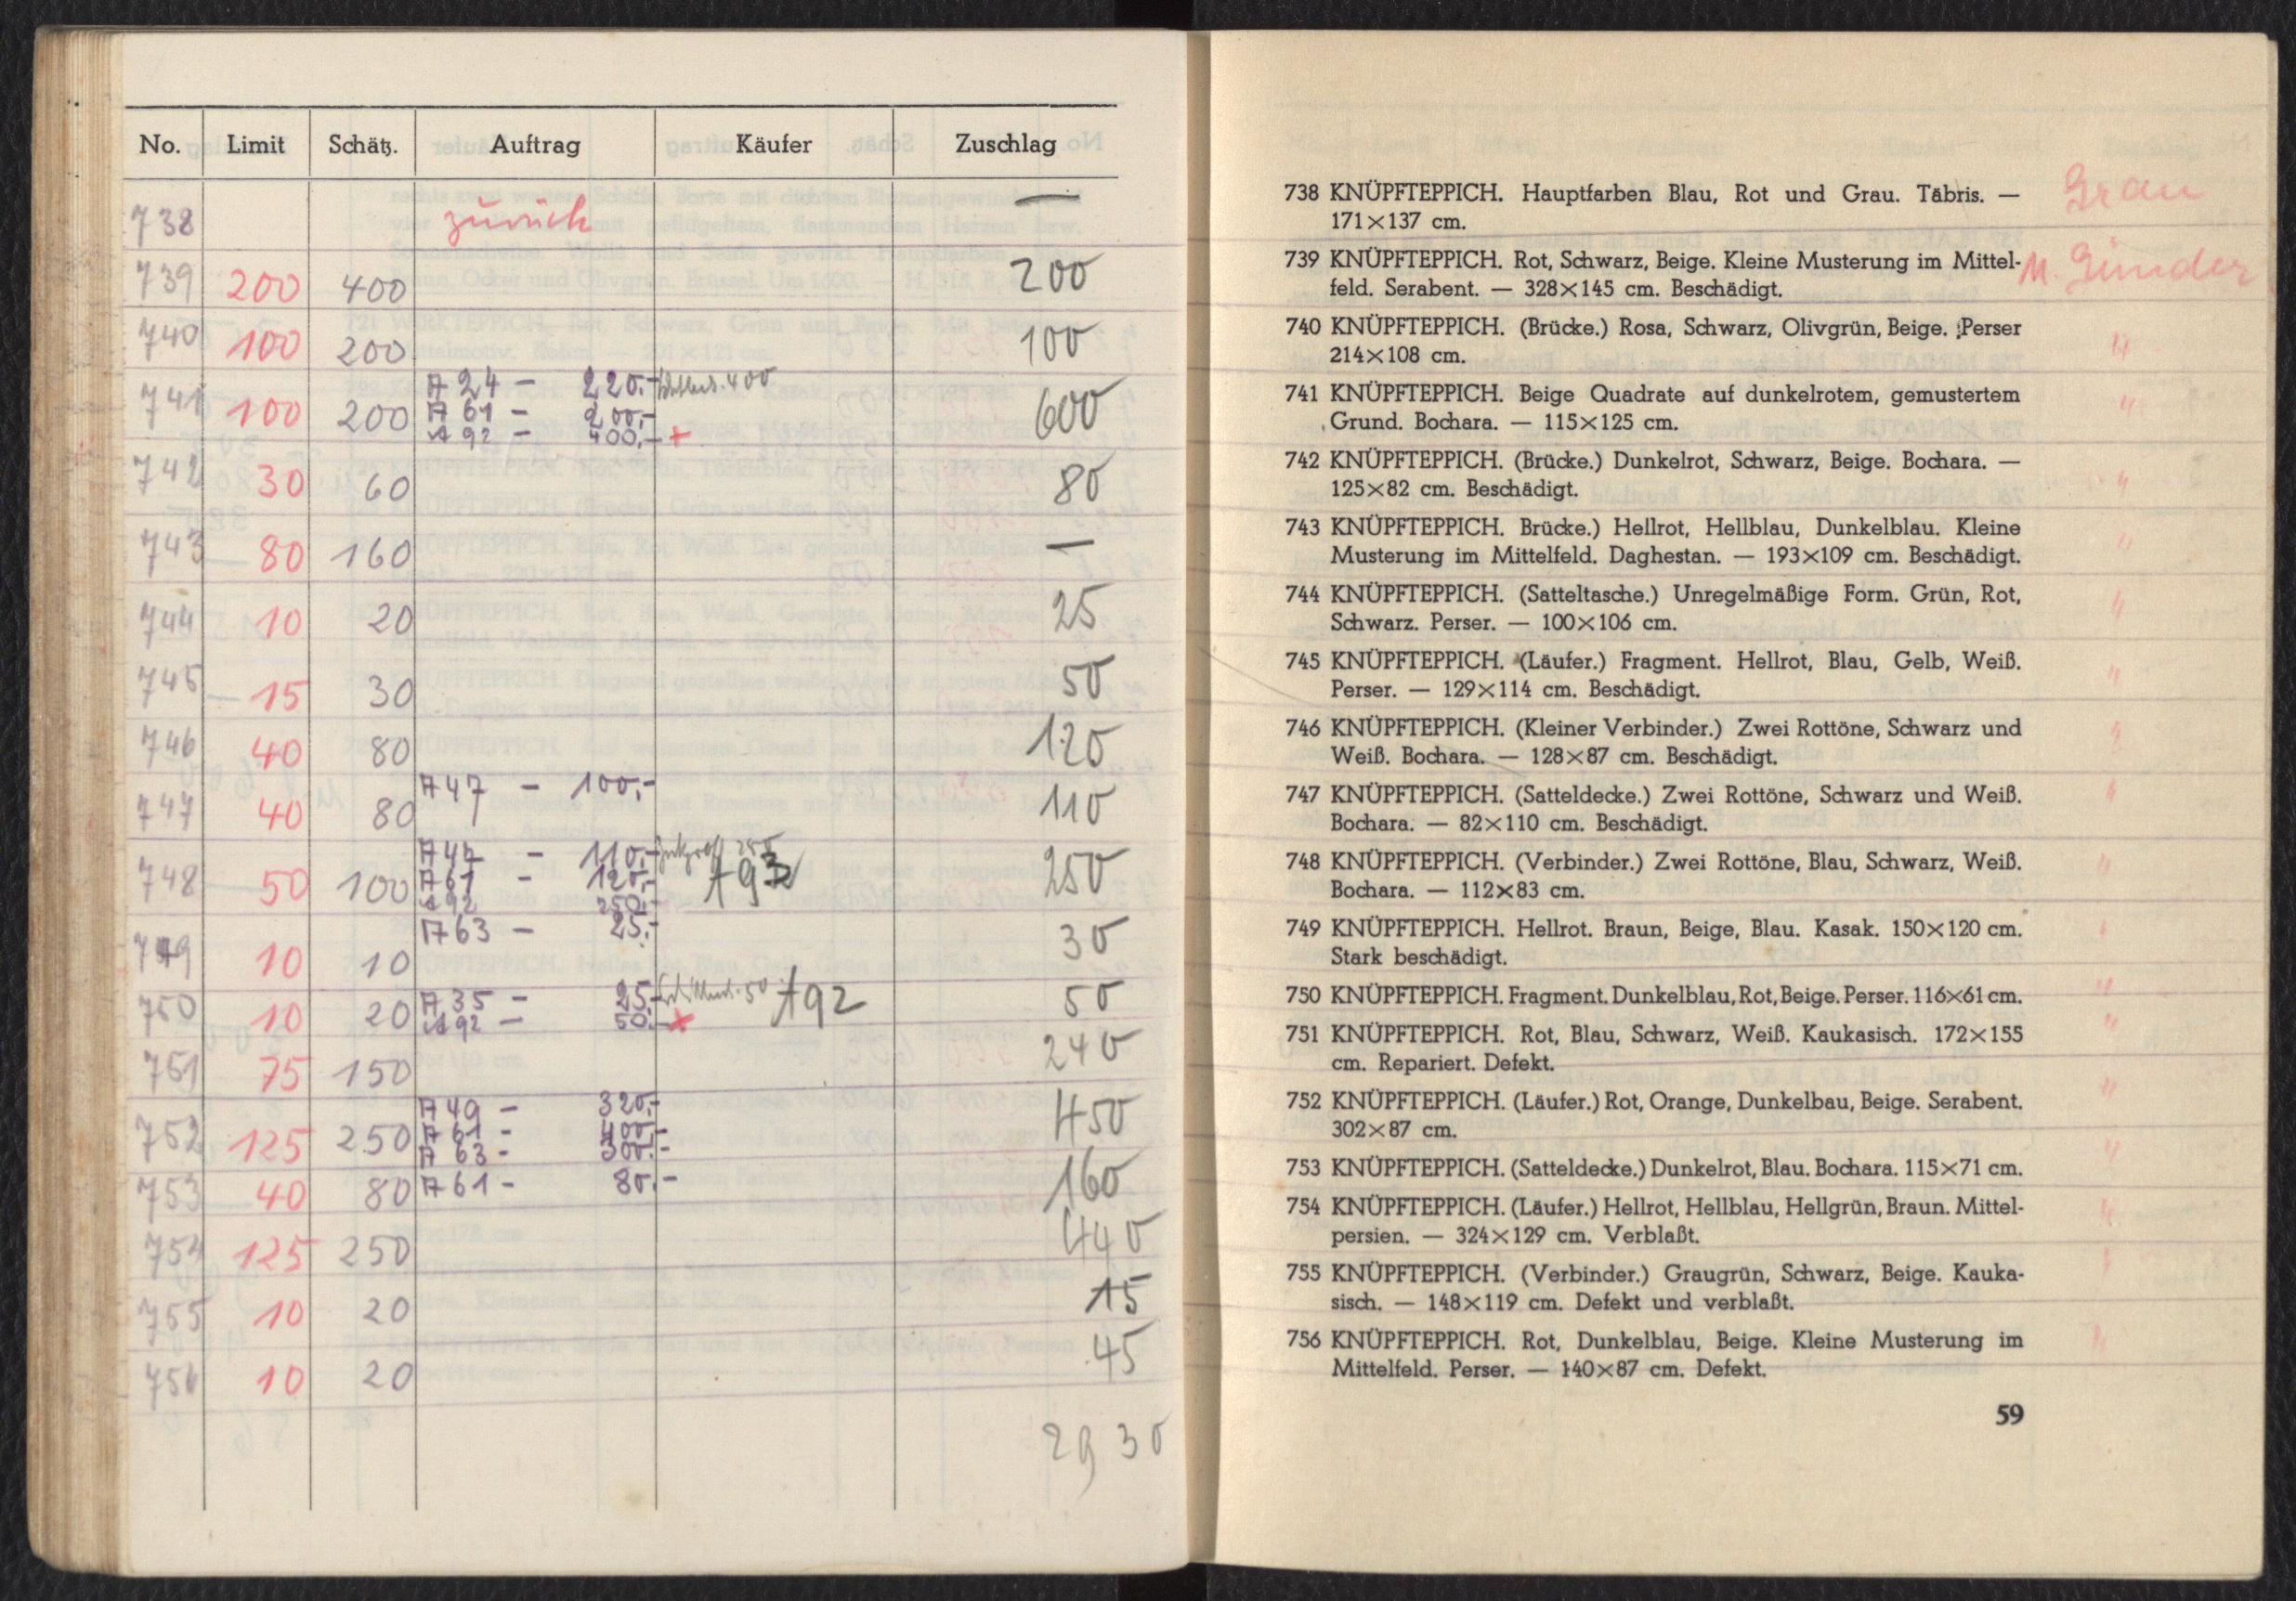 No. Limit Schätz. Auftrag Käufer Zuschlag
738 zurück —
739 200 400 200
740 100 200 100
741 100 200 A 24 — 220.- 400 600
A 61 — 200.-
A 92 — 400.- +
742 30 60 80
743 — 80 160 —
744 10 20 25
745 — 15 30 50
746 40 80 120
747 40 80 A 47 — 100.- 110
748 — 50 100 A 47 — 110.- 250
A 61 — 120.- A 93
A 92 250.-
749 10 10 A 63 — 25.- 30
750 10 20 A 35 — 25.- 50 A 92 50
A 92 — 50.- +
751 75 150 240
752 125 250 A 49 — 320.- 450
A 61 — 400.-
A 63 — 300.-
753 — 40 80 A 61 — 80.- 160
754 125 250 440
755 10 20 15
756 10 20 45
2930
738 KNÜPFTEPPICH. Hauptfarben Blau, Rot und Grau. Täbris. — Grau
171×137 cm.
739 KNÜPFTEPPICH. Rot, Schwarz, Beige. Kleine Musterung im Mittel- M. Günder
feld. Serabent. — 328×145 cm. Beschädigt.
740 KNÜPFTEPPICH. (Brücke.) Rosa, Schwarz, Olivgrün, Beige. Perser "
214×108 cm.
741 KNÜPFTEPPICH. Beige Quadrate auf dunkelrotem, gemustertem "
Grund. Bochara. — 115×125 cm.
742 KNÜPFTEPPICH. (Brücke.) Dunkelrot, Schwarz, Beige. Bochara. — "
125×82 cm. Beschädigt.
743 KNÜPFTEPPICH. Brücke.) Hellrot, Hellblau, Dunkelblau. Kleine "
Musterung im Mittelfeld. Daghestan. — 193×109 cm. Beschädigt.
744 KNÜPFTEPPICH. (Satteltasche.) Unregelmäßige Form. Grün, Rot, "
Schwarz. Perser. — 100×106 cm.
745 KNÜPFTEPPICH. (Läufer.) Fragment. Hellrot, Blau, Gelb, Weiß. "
Perser. — 129×114 cm. Beschädigt.
746 KNÜPFTEPPICH. (Kleiner Verbinder.) Zwei Rottöne, Schwarz und "
Weiß. Bochara. — 128×87 cm. Beschädigt.
747 KNÜPFTEPPICH. (Satteldecke.) Zwei Rottöne, Schwarz und Weiß. "
Bochara. — 82×110 cm. Beschädigt.
748 KNÜPFTEPPICH. (Verbinder.) Zwei Rottöne, Blau, Schwarz, Weiß. "
Bochara. — 112×83 cm.
749 KNÜPFTEPPICH. Hellrot. Braun, Beige, Blau. Kasak. 150×120 cm. "
Stark beschädigt.
750 KNÜPFTEPPICH. Fragment. Dunkelblau, Rot, Beige. Perser. 116×61 cm. "
751 KNÜPFTEPPICH. Rot, Blau, Schwarz, Weiß. Kaukasisch. 172×155 "
cm. Repariert. Defekt.
752 KNÜPFTEPPICH. (Läufer.) Rot, Orange, Dunkelbau, Beige. Serabent. "
302×87 cm.
753 KNÜPFTEPPICH. (Satteldecke.) Dunkelrot, Blau. Bochara. 115×71 cm. "
754 KNÜPFTEPPICH. (Läufer.) Hellrot, Hellblau, Hellgrün, Braun. Mittel- "
persien. — 324×129 cm. Verblaßt.
755 KNÜPFTEPPICH. (Verbinder.) Graugrün, Schwarz, Beige. Kauka- "
sisch. — 148×119 cm. Defekt und verblaßt.
756 KNÜPFTEPPICH. Rot, Dunkelblau, Beige. Kleine Musterung im "
Mittelfeld. Perser. — 140×87 cm. Defekt.
59